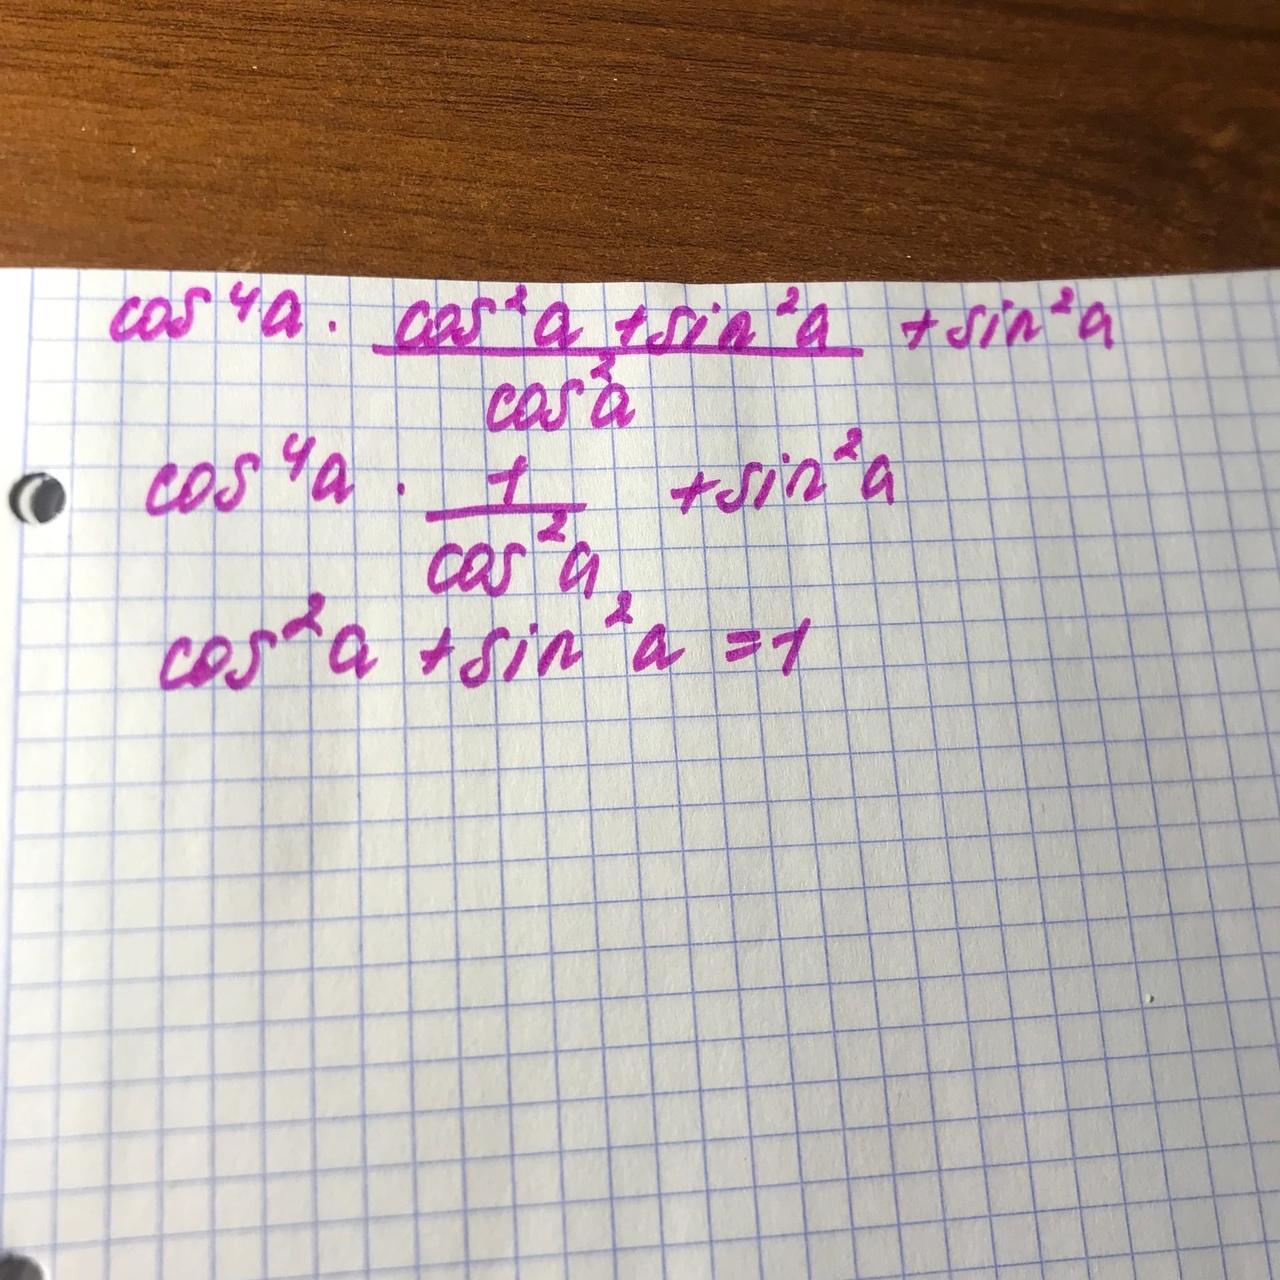 cos⁴a · (cos²a + sin²a)/(cos²a) + sin²a
cos⁴a · 1/(cos²a) + sin²a
cos²a + sin²a = 1